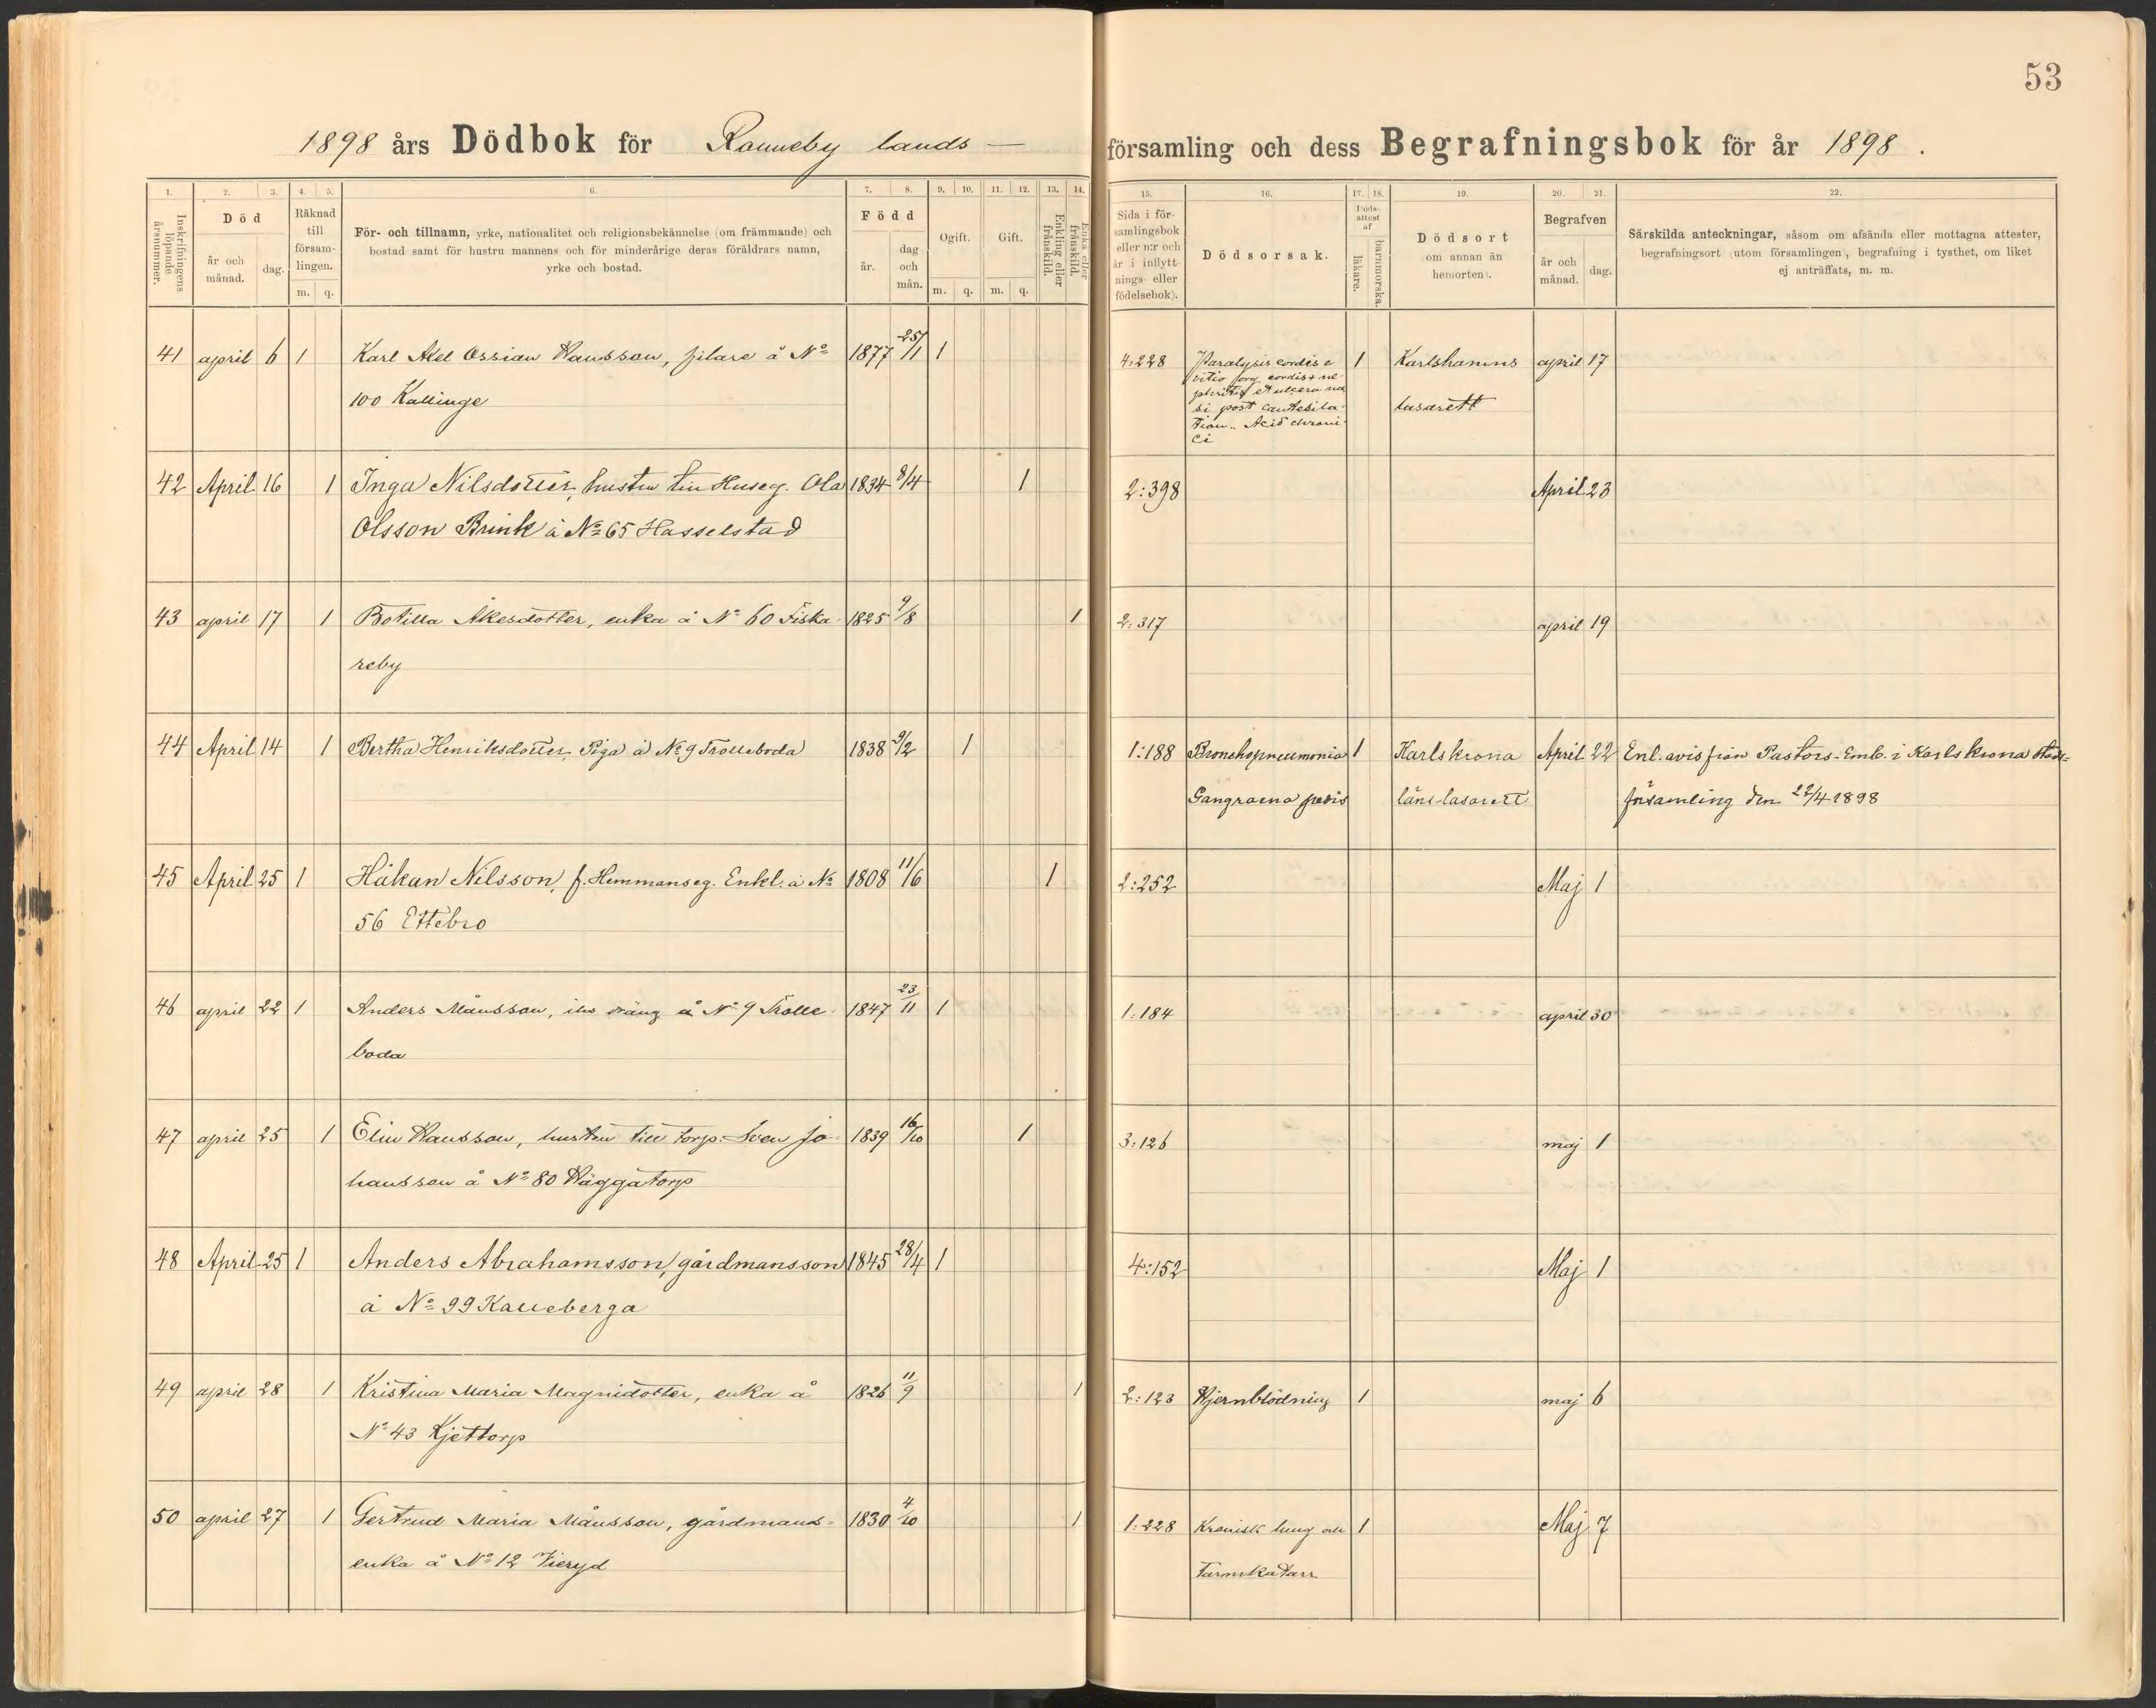 53
1898 års Dödbok för Ronneby lands —
församling och dess Begrafningsbok för år 1898.
1. 2. 3. 4. 5. 6. 7. 8. 9. 10. 11. 12. 13. 14.
Inskrifningens löpande årsnummer.
Död
år och månad.
dag.
Räknad till församlingen.
m. q.
För- och tillnamn, yrke, nationalitet och religionsbekännelse (om främmande) och
bostad samt för hustru mannens och för minderårige deras föräldrars namn,
yrke och bostad.
Född
år.
dag och mån.
Ogift.
m. q.
Gift.
m. q.
Enkling eller frånskild.
Enka eller frånskild.
15. 16. 17. 18. 19. 20. 21. 22.
Sida i för-
samlingsbok
eller n:r och
år i inflytt-
nings- eller
födelsebok).
Dödsorsak.
Döds-
attest
af
läkare.
barnmorska.
Dödsort
om annan än
hemorten).
Begrafven
år och månad.
dag.
Särskilda anteckningar, såsom om afsända eller mottagna attester,
begrafningsort (utom församlingen), begrafning i tysthet, om liket
ej anträffats, m. m.
41 april 6 1 Karl Axel Ossian Hansson, filare å No 1877 25/1 1
100 Kallinge
4:228 Paralysis cordis e 1 Karlshamns april 17
vitio org. cordis + ne-
phritis et ulcera na
si post
lasarett
Acid chromi
ci
42 April 16 1 Inga Nilsdotter, hustru till Huseg. Ola 1834 8/4 1
Olsson Brink å No 65 Hasselstad
2:398 April 23
43 april 17 1 Botilla Åkesdotter, enka å No 60 Fiska- 1825 9/8 1
reby
2:317 april 19
44 April 14 1 Bertha Henriksdotter, Piga å No 9 Trolleboda 1838 9/2 1
1:188 Bronchopneumonia 1 Karlskrona April 22 Enl. avis från Pastors-Emb. i Karlskrona stads-
Gangraena pedis läns-lasarett församling den 22/4 1898
45 April 25 1 Håkan Nilsson, f. Hemmanseg. Enkl. å No 1808 11/6 1
56 Ettebro
2:252 Maj 1
46 april 22 1 Anders Månsson, dräng å No 9 Trolle- 1847 23/11 1
boda
1:184 april 30
47 april 25 1 Elin Hansson, hustru till torp. Sven Jo- 1839 16/10 1
hansson å No 80 Häggatorp
3:126 maj 1
48 April 25 1 Anders Abrahamsson, gårdmansson 1845 28/4 1
å No 99 Kalleberga
4:152 Maj 1
49 april 28 1 Kristina Maria Magnidotter, enka å 1826 11/9 1
No 43 Kjettorp
2:123 Hjernblödning 1 maj 6
50 april 27 1 Gertrud Maria Månsson, gårdmans- 1830 4/10 1
enka å No 12 Vieryd
1:228 Kronisk lung och 1 Maj 7
Tarmkatarr